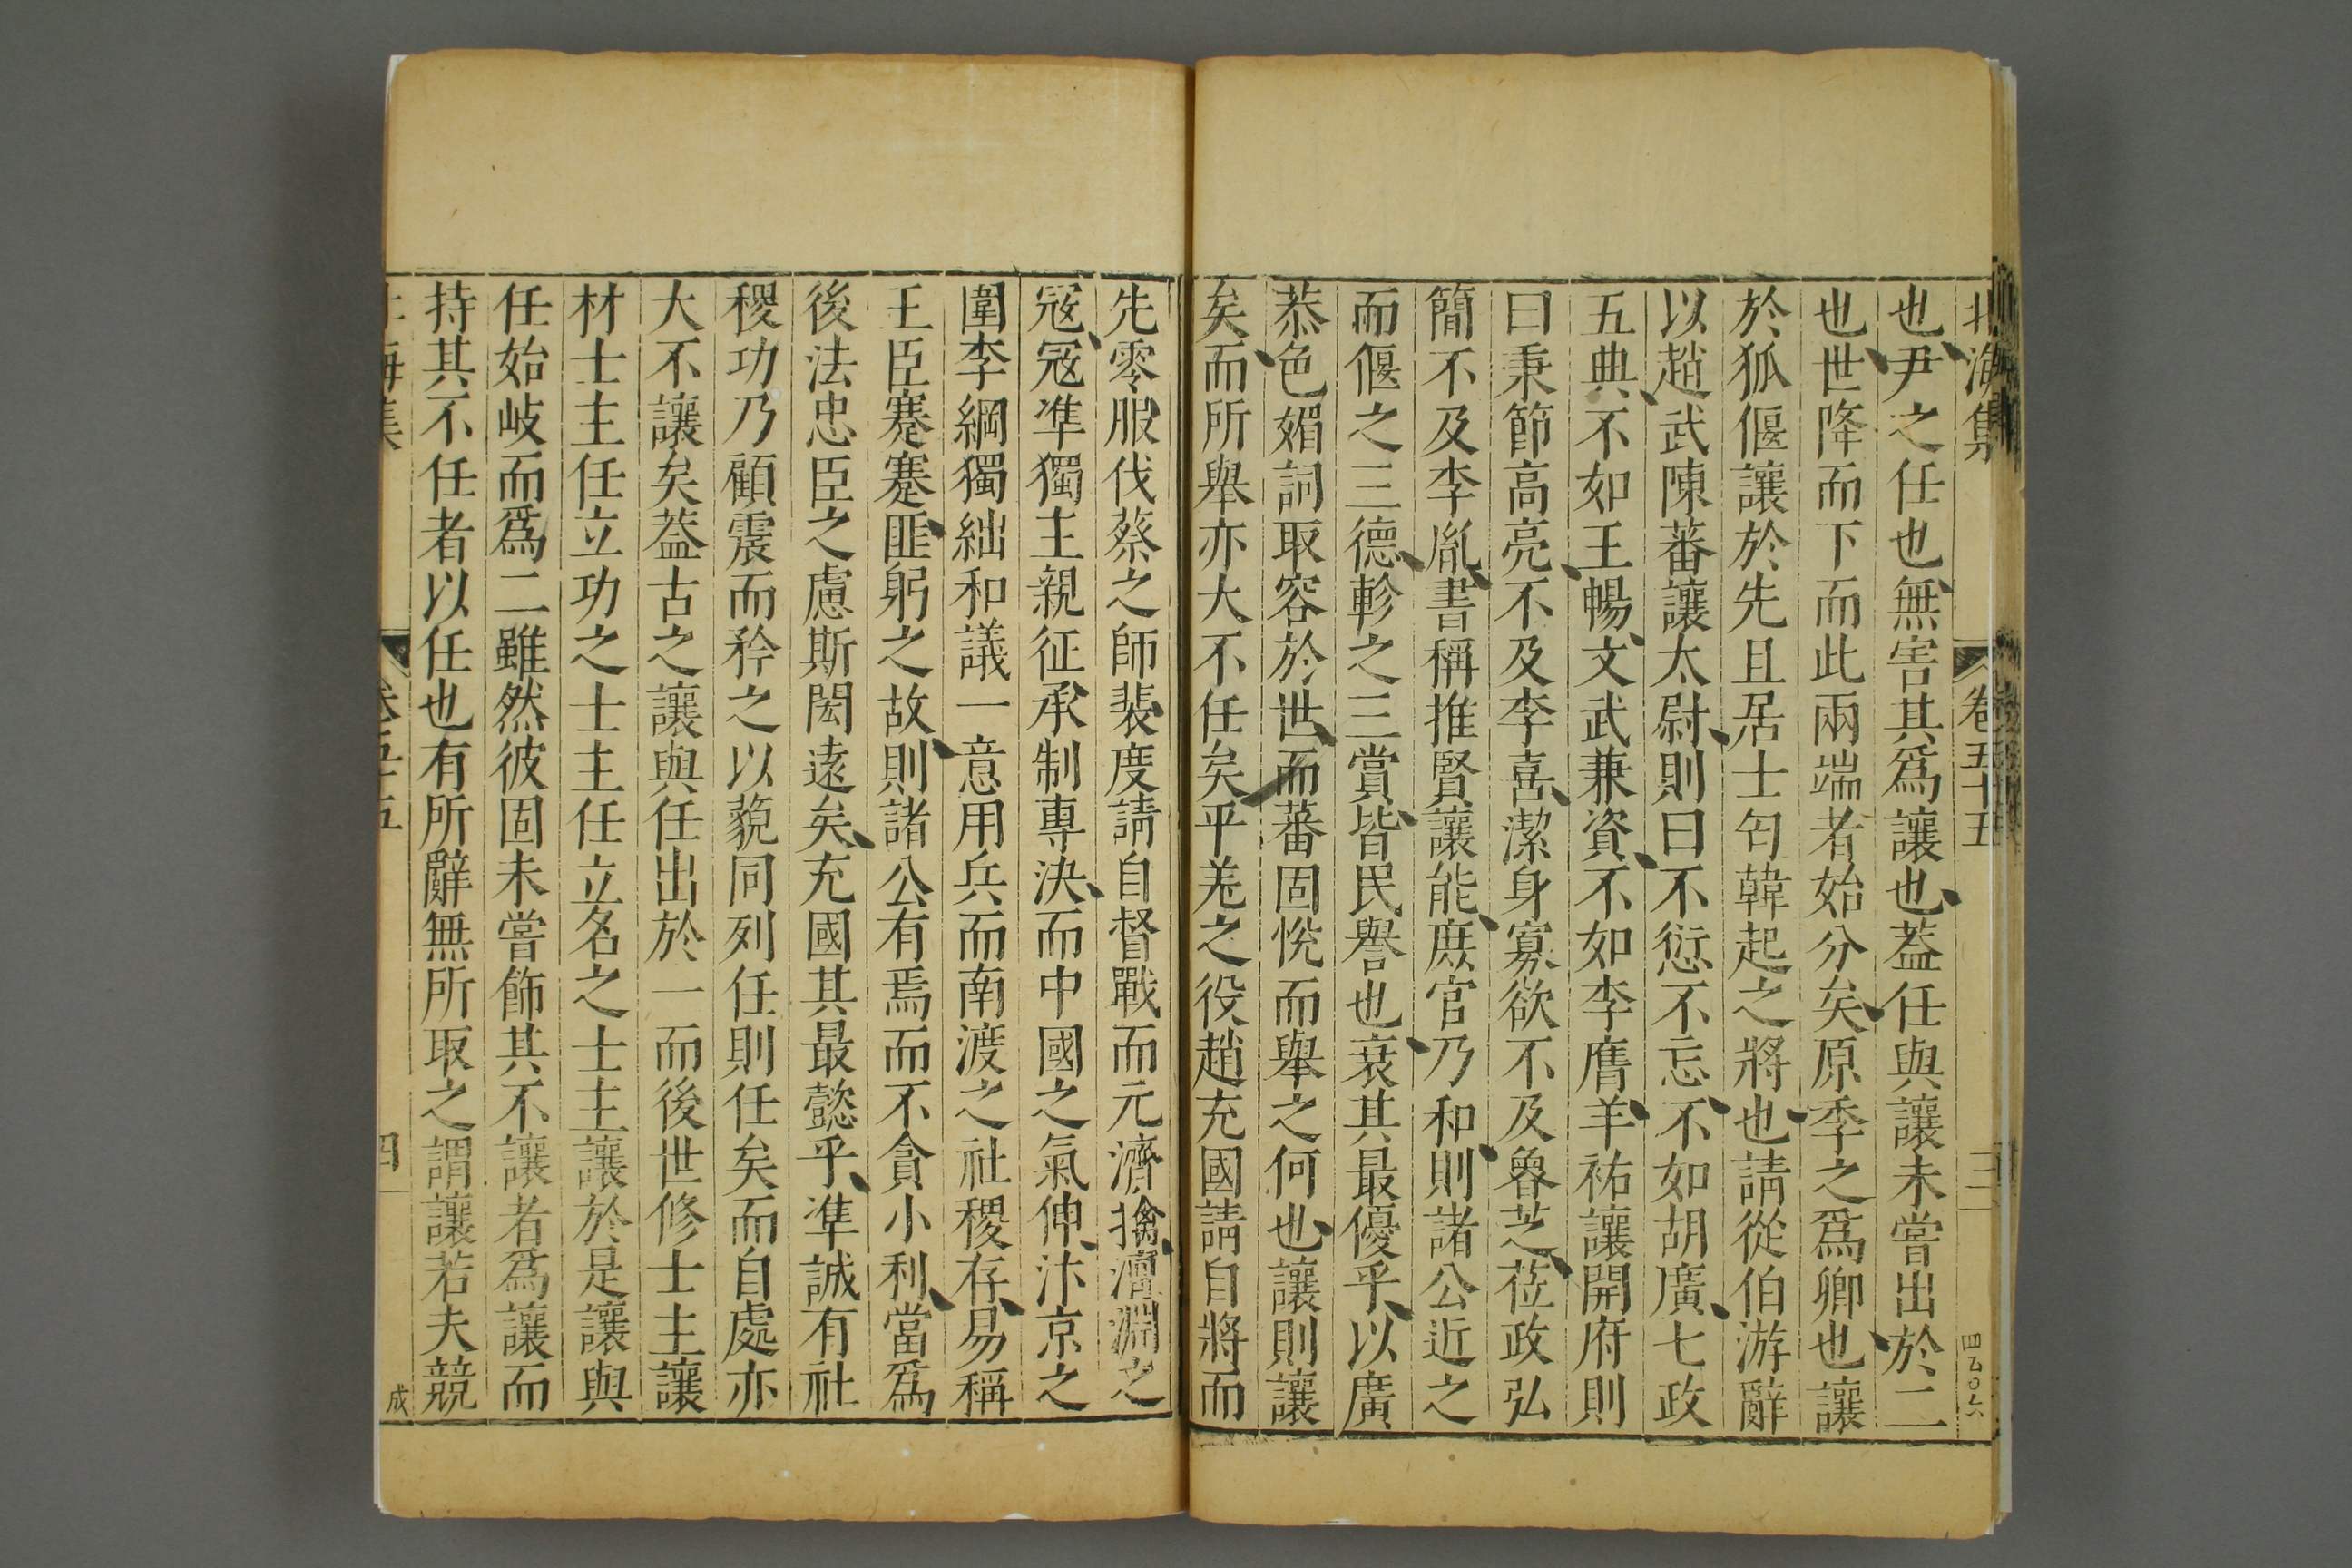 北海集 卷五十五 三
也尹之任也無害其爲讓也葢任與讓未嘗出於二
也世降而下而此兩端者始分矣原季之爲卿也讓
於狐偃讓於先且居士匄韓起之將也請從伯游辭
以趙武陳蕃讓太尉則曰不愆不忘不如胡廣七政
五典不如王暢文武兼資不如李膺羊祜讓開府則
曰秉節高亮不及李喜潔身寡欲不及魯芝莅政弘
簡不及李胤書稱推賢讓能庶官乃和則諸公近之
而偃之三德軫之三賞皆民譽也衰其最優乎以廣
恭色媚詞取容於世而蕃固悅而舉之何也讓則讓
矣而所舉亦大不任矣平羌之役趙充國請自將而
先零服伐蔡之師裴度請自督戰而元濟擒澶淵之
寇寇準獨主親征承制專決而中國之氣伸汴京之
圍李綱獨絀和議一意用兵而南渡之社稷存易稱
王臣蹇蹇匪躬之故則諸公有焉而不貪小利當爲
後法忠臣之慮斯閎遠矣充國其最懿乎準誠有社
稷功乃顧震而矜之以藐同列任則任矣而自處亦
大不讓矣葢古之讓與任出於一而後世修士主讓
材士主任立功之士主任立名之士主讓於是讓與
任始岐而爲二雖然彼固未嘗飾其不讓者爲讓而
持其不任者以任也有所辭無所取之謂讓若夫競
海集 卷五十五 四 成